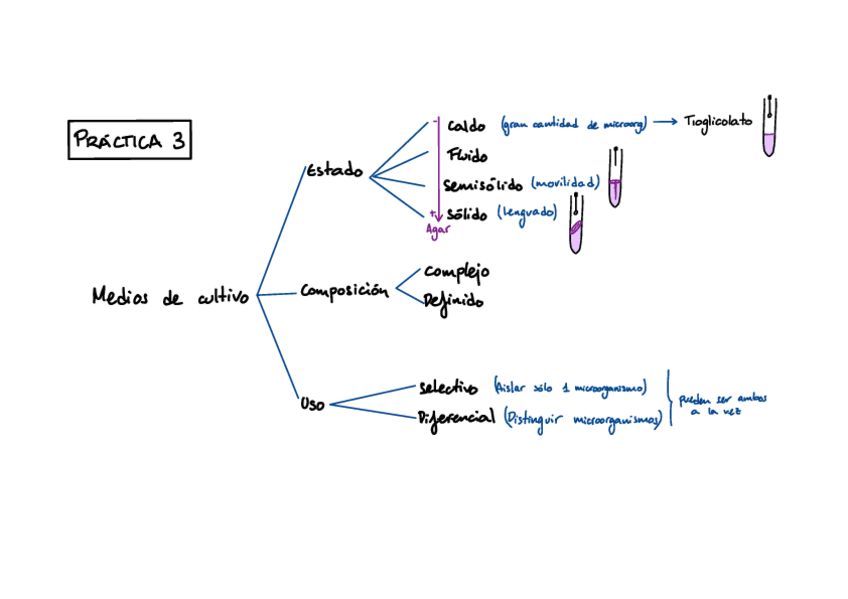 PRÁCTICA 3
Estado
-
Caldo (gran cantidad de microorg) → Tioglicolato
Fluido
Semisólido (movilidad)
+ Sólido (lenguado)
Agar
Medios de cultivo
Composición
Complejo
Definido
Uso
Selectivo (Aislar sólo 1 microorganismo)
Diferencial (Distinguir microorganismos)
pueden ser ambos
a la vez